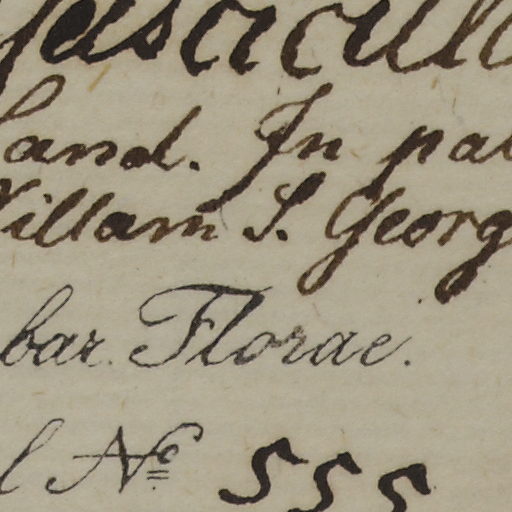 fascicul
land. In pal
Villam S. Georg
bar. Florae.
l Nº 555